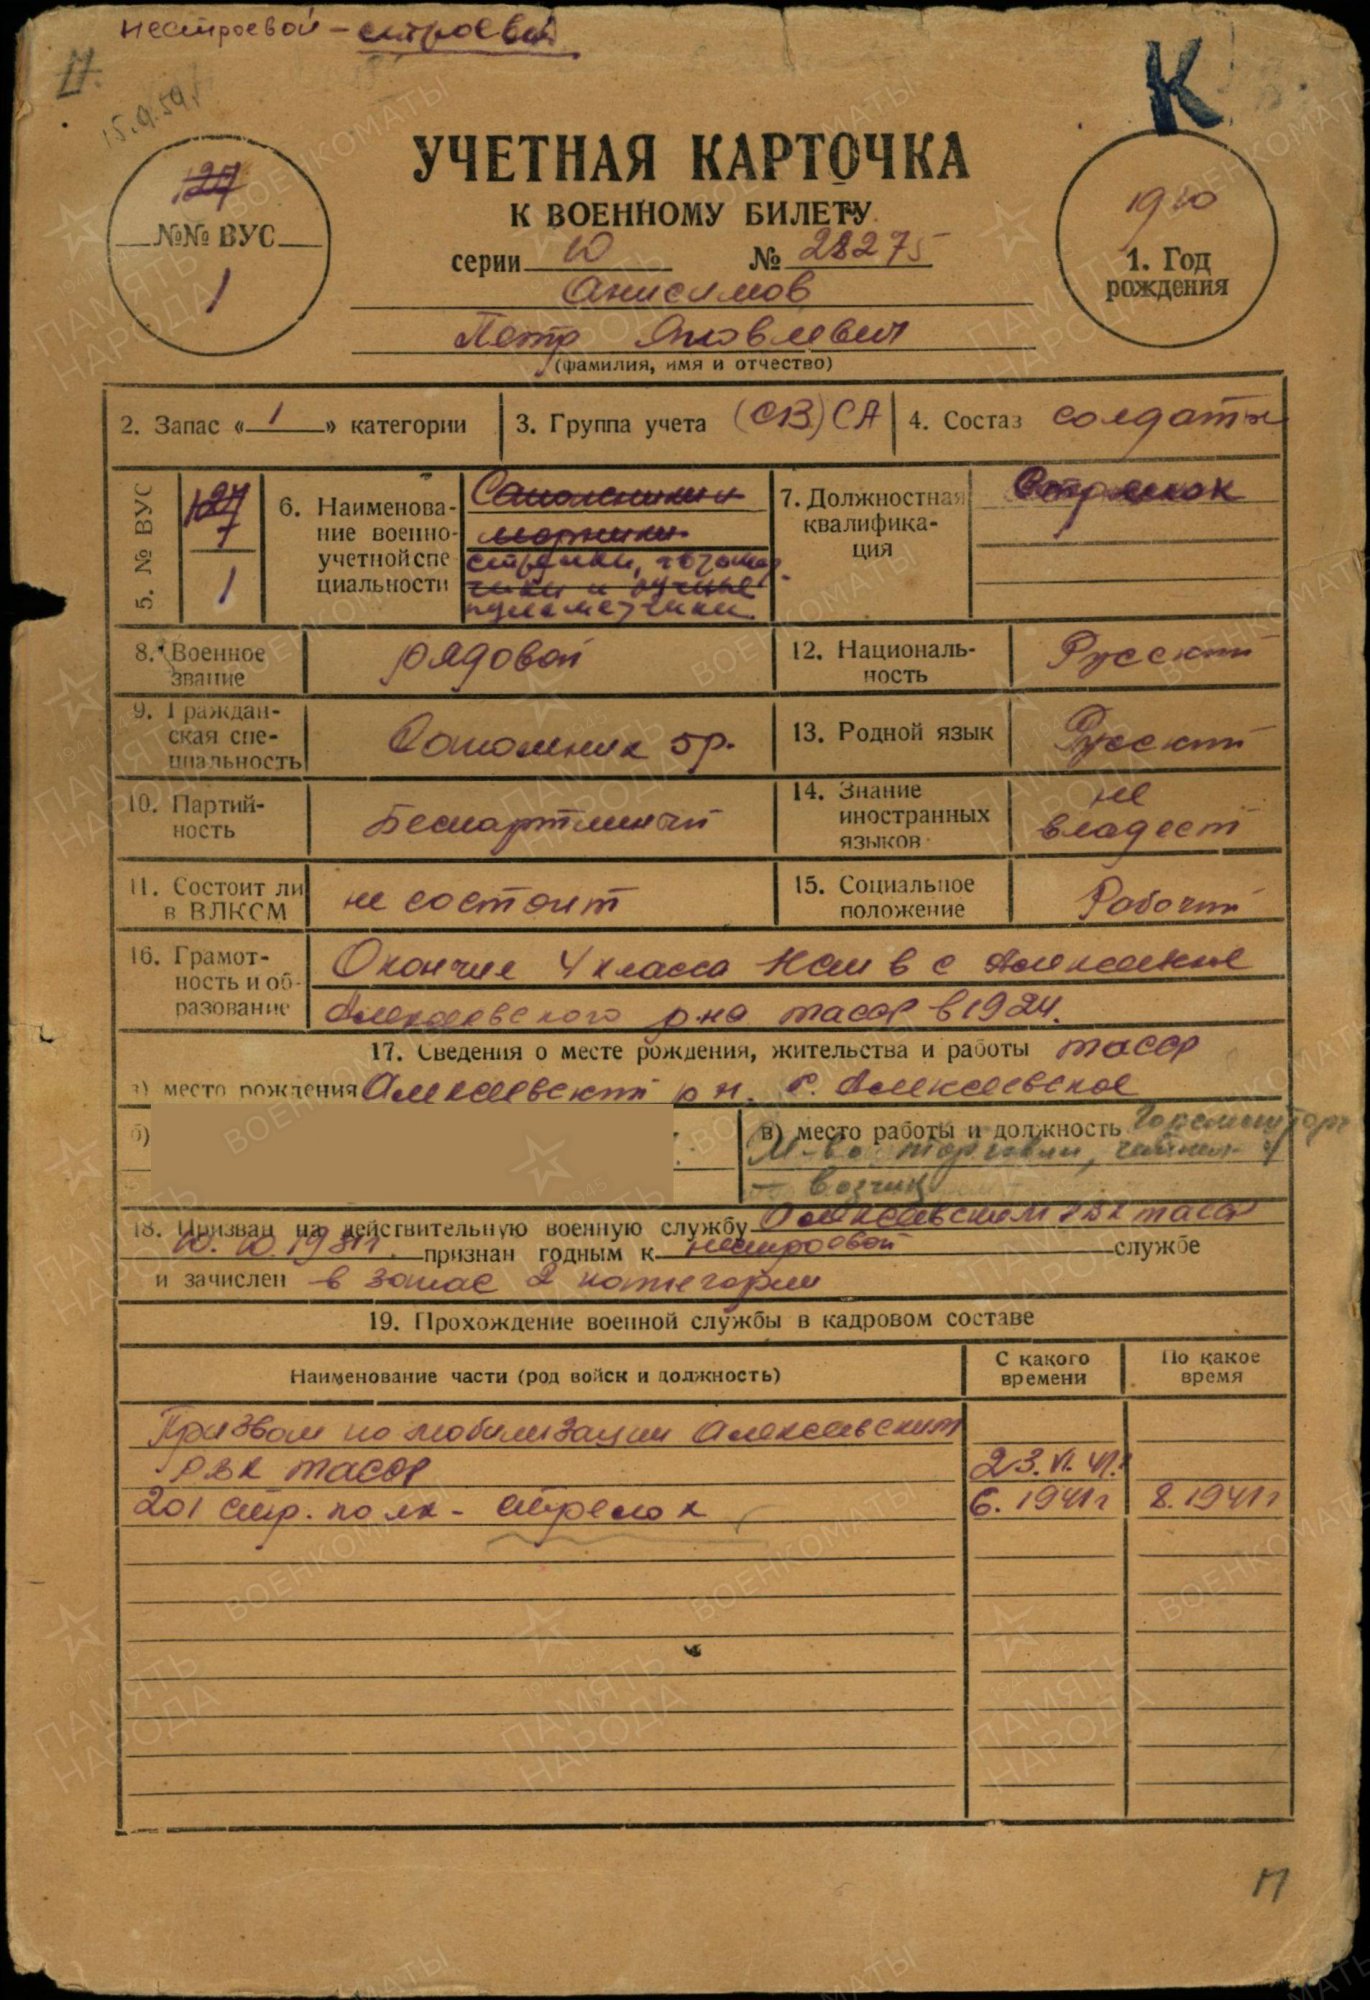 нестроевой - строевой
15.9.59г.
К
УЧЕТНАЯ КАРТОЧКА
К ВОЕННОМУ БИЛЕТУ
серии Ю № 28275
127
№№ ВУС
1
1910
1. Год
рождения
Анисимов
Петр Яковлевич
(фамилия, имя и отчество)
2. Запас « 1 » категории
3. Группа учета (СВ) СА
4. Состав солдаты
5. № ВУС
127
1
6. Наименова-
ние военно-
учетной спе
циальности
Сапожники и
шорники
стрелки, автомат-
чики и ручные
пулеметчики
7. Должностная
квалифика-
ция
Стрелок
8. Военное
звание
рядовой
12. Националь-
ность
Русский
9. Граждан-
ская спе-
циальность
Сапожник 5р.
13. Родной язык
Русский
10. Партий-
ность
Беспартийный
14. Знание
иностранных
языков
не
владеет
11. Состоит ли
в ВЛКСМ
не состоит
15. Социальное
положение
Рабочий
16. Грамот-
ность и об-
разование
Окончил 4 класса НСШ в с Алексеевское
Алексеевского р на ТАССР в 1924.
17. Сведения о месте рождения, жительства и работы ТАССР
а) место рождения Алексеевский р н. с. Алексеевское
б)
в) место работы и должность
М-во торговли,
- возчик
18. Призван на действительную военную службу Алексеевским РВК ТАССР
10. 10. 1931г. признан годным к нестроевой службе
и зачислен в запас 2 категории
19. Прохождение военной службы в кадровом составе
Наименование части (род войск и должность)
С какого
времени
По какое
время
Призван по мобилизации Алексеевским
РВК ТАССР 23.VI.41г
201 стр. полк - стрелок 6. 1941г 8. 1941г
П
ПАМЯТЬ НАРОДА
1941-1945
ВОЕНКОМАТЫ